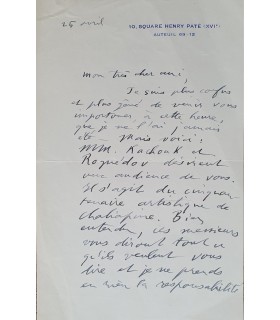 25 avril
10, SQUARE HENRY PATÉ (XVIᵉ)
AUTEUIL 69.12
mon très cher ami,
Je suis plus confus
et plus gêné de venir vous
importuner à cette heure,
que je ne l'ai jamais
été — Mais voici:
MM. Kachouk et
Rognédov désirent
une audience de vous.
Il s'agit du cinquan
tenaire artistique de
Chaliapine. Bien
entendu, ces messieurs
vous diront tout ce
qu'ils veulent vous
dire et je ne prends
en rien la responsabilité